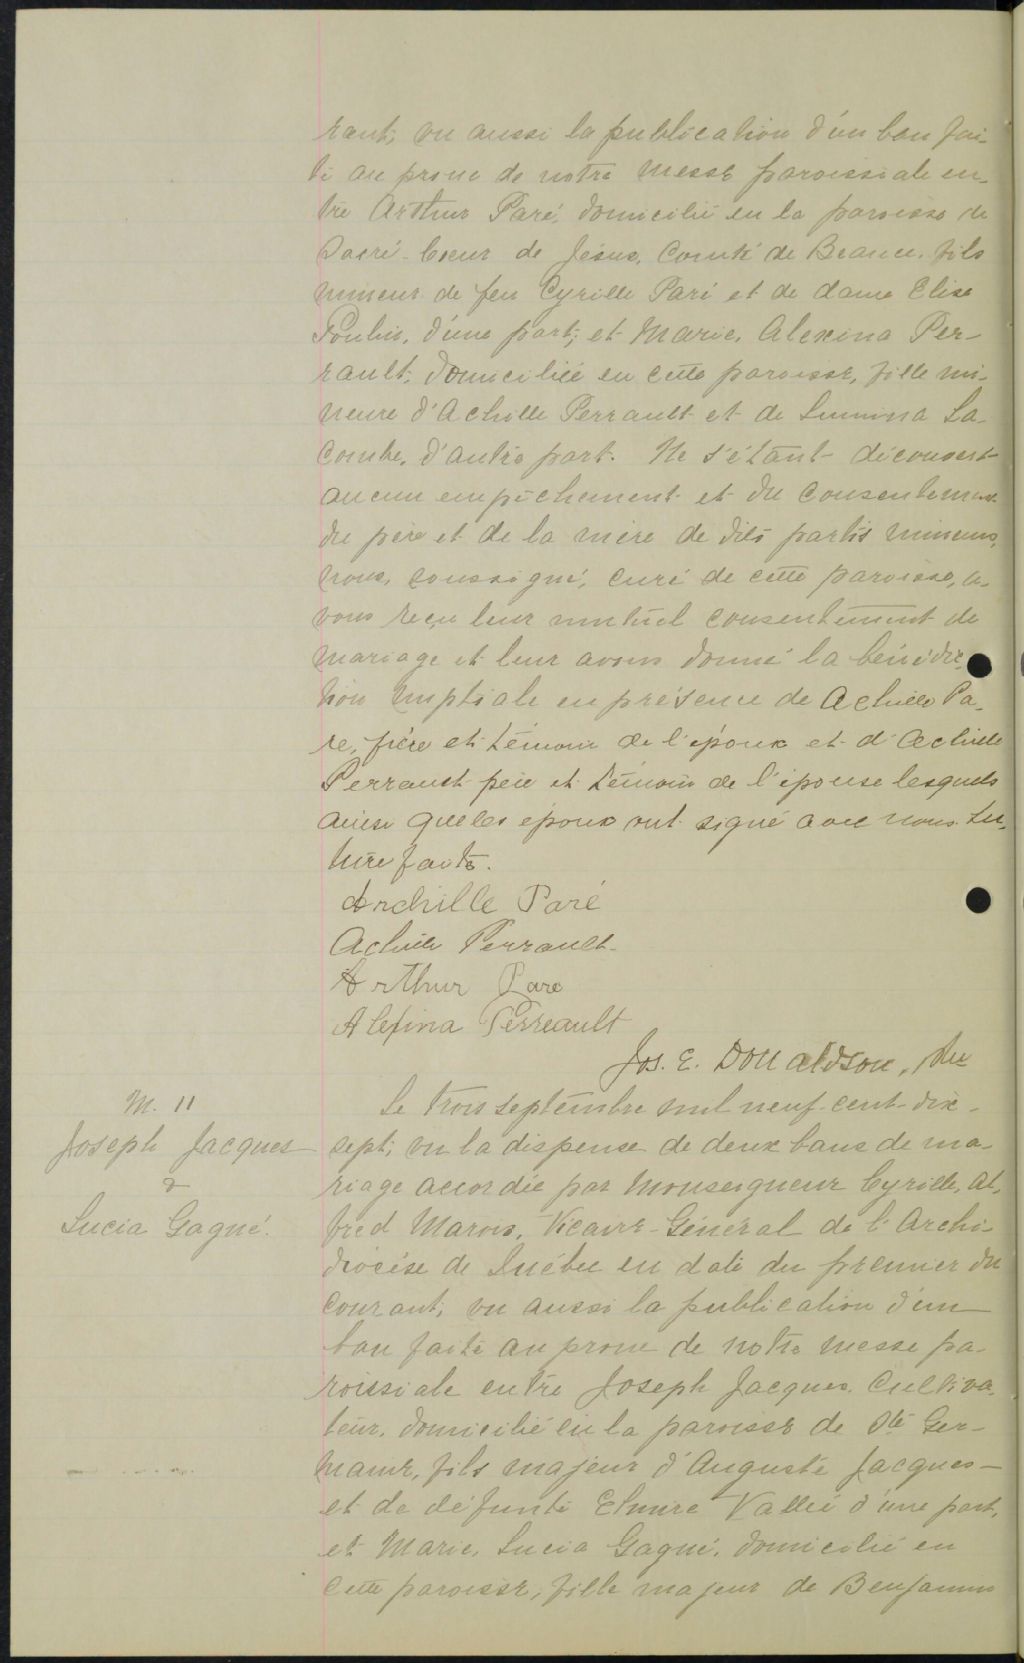 rant; vu aussi la publication d'un ban fai-
te au prone de notre messe paroissiale en-
tre Arthur Paré, domicilié en la paroisse de
Sacré-Coeur de Jésus, Comté de Beauce, fils
mineur de feu Cyrille Paré et de dame Elise
Poulin, d'une part; et Marie, Alexina Per-
rault, domiciliée en cette paroisse, fille mi-
neure d'Achille Perrault et de Lumina La-
combe, d'autre part. Ne s'étant découvert
aucun empêchement et du consentement
du père et de la mère de dits partis mineurs,
nous, soussigné, curé de cette paroisse, a-
vons reçu leur mutuel consentement de
mariage et leur avons donné la bénédic-
tion nuptiale en présence de Achille Pa-
ré, frère et témoin de l'époux et d'Achille
Perrault père et témoin de l'épouse lesquels
ainsi que les époux ont signé avec nous. Lec-
ture faite.
Archille Paré
Achille Perrault
Arthur Paré
Alexina Perreault
Jos. E. Donaldson, Ptre
M. 11
Joseph Jacques
&
Lucia Gagné.
Le trois septembre mil neuf-cent-dix-
sept; vu la dispense de deux bans de ma-
riage accordée par Monseigneur Cyrille, Al-
fred Marois, Vicaire-Général de l'Archi-
diocèse de Québec en date du premier du
courant; vu aussi la publication d'un
ban faite au prone de notre messe pa-
roissiale entre Joseph Jacques, Cultiva-
teur, domicilié en la paroisse de Ste Ger-
maine, fils majeur d'Auguste Jacques
et de défunte Elmire Vallée d'une part,
et Marie, Lucia Gagné, domicilié en
cette paroisse, fille majeur de Benjamin